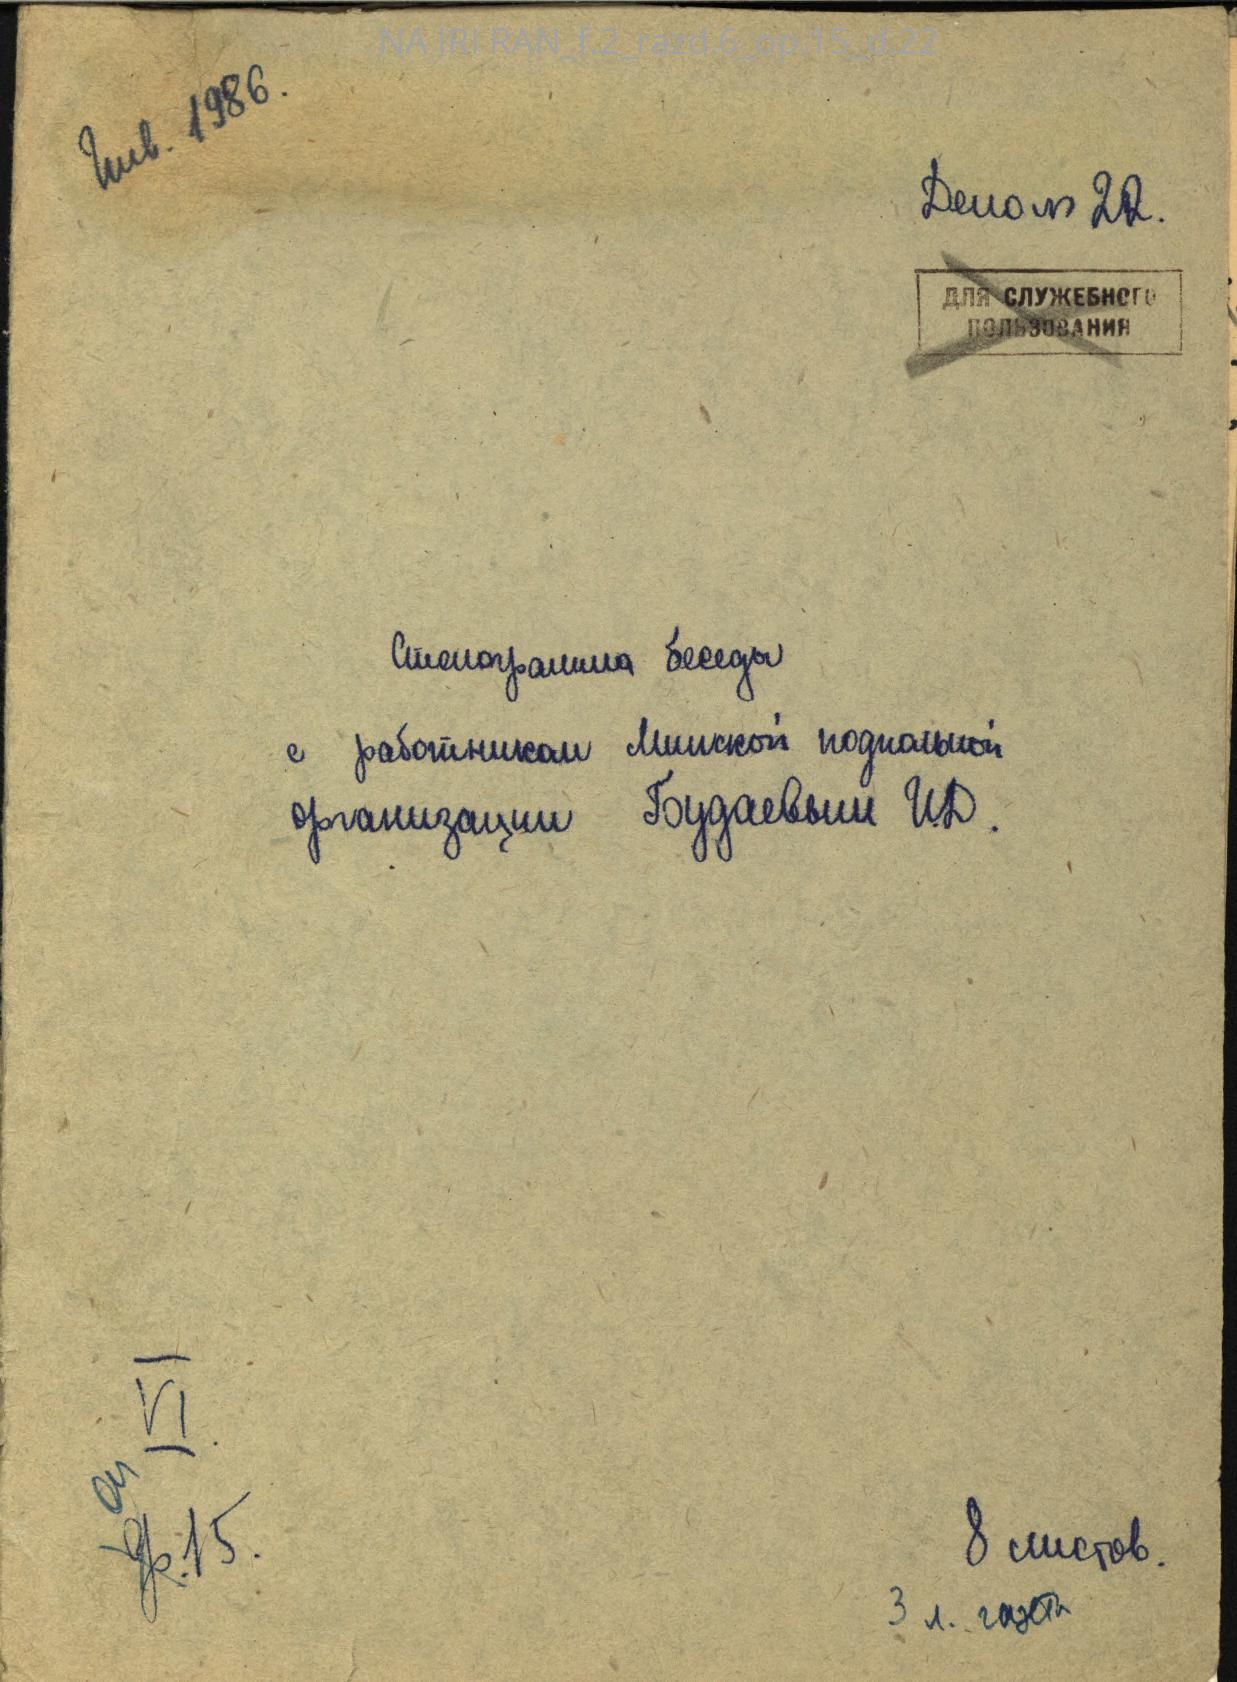 NA IRI RAN_f.2_razd.6_op.15_d.22
Инв. 1986.
Дело № 22.
ДЛЯ СЛУЖЕБНОГО
ПОЛЬЗОВАНИЯ
Стенограмма беседы
с работником Минской подпольной
организации Будаевым И.Д.
VI.
оп
15.
8 листов.
3 л. газета